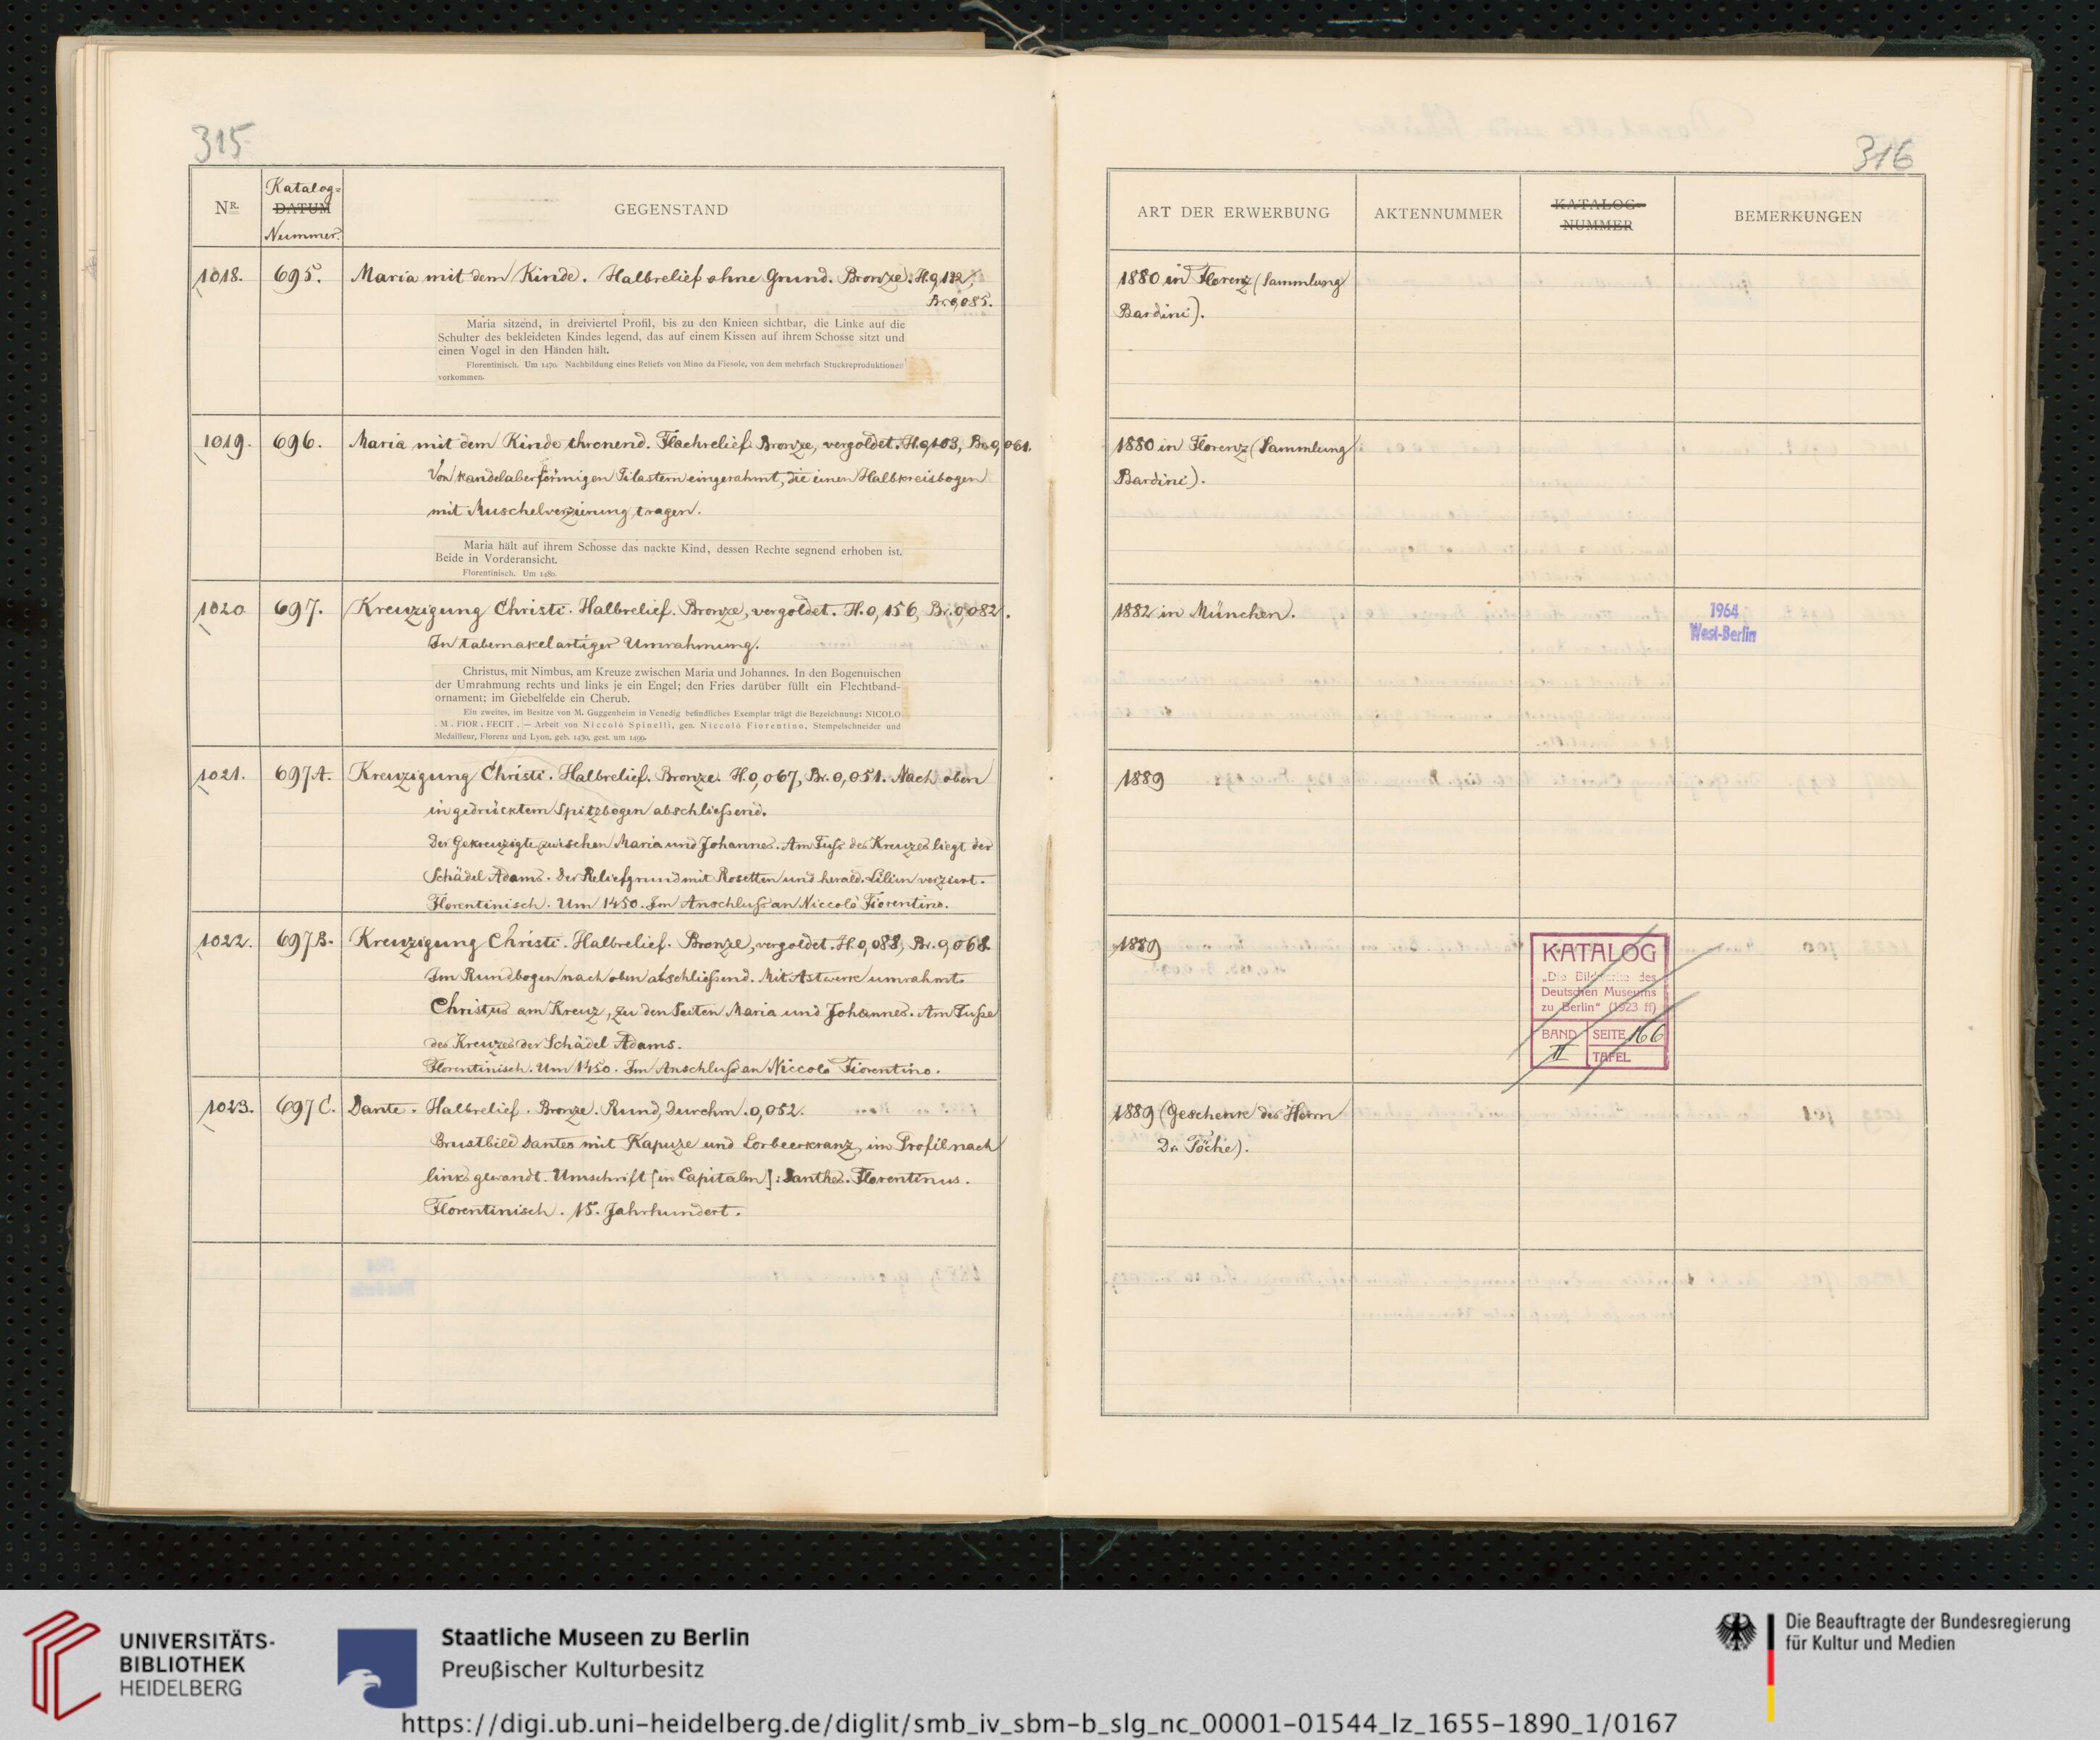 315
316
NR.
Katalog=
DATUM
Nummer.
GEGENSTAND
ART DER ERWERBUNG
AKTENNUMMER
KATALOG-
NUMMER
BEMERKUNGEN
1018. 695. Maria mit dem Kinde. Halbrelief ohne Grund. Bronze. H.0,132,
Br. 0,085.
Maria sitzend, in dreiviertel Profil, bis zu den Knieen sichtbar, die Linke auf die
Schulter des bekleideten Kindes legend, das auf einem Kissen auf ihrem Schosse sitzt und
einen Vogel in den Händen hält.
Florentinisch. Um 1470. Nachbildung eines Reliefs von Mino da Fiesole, von dem mehrfach Stuckreproduktionen
vorkommen.
1880 in Florenz (Sammlung
Bardini).
1019. 696. Maria mit dem Kinde thronend. Flachrelief. Bronze, vergoldet. H.0,103, Br. 0,061.
Von kandelaberförmigen Pilastern eingerahmt, die einen Halbkreisbogen
mit Muschelverzierung tragen.
Maria hält auf ihrem Schosse das nackte Kind, dessen Rechte segnend erhoben ist.
Beide in Vorderansicht.
Florentinisch. Um 1480.
1880 in Florenz (Sammlung
Bardini).
1020 697. Kreuzigung Christi. Halbrelief. Bronze, vergoldet. H. 0,156, Br. 0,082.
In tabernakelartiger Umrahmung.
Christus, mit Nimbus, am Kreuze zwischen Maria und Johannes. In den Bogennischen
der Umrahmung rechts und links je ein Engel; den Fries darüber füllt ein Flechtband-
ornament; im Giebelfelde ein Cherub.
Ein zweites, im Besitze von M. Guggenheim in Venedig befindliches Exemplar trägt die Bezeichnung: NICOLO
. M . FIOR . FECIT . — Arbeit von Niccolò Spinelli, gen. Niccolò Fiorentino, Stempelschneider und
Medailleur, Florenz und Lyon, geb. 1430, gest. um 1499.
1882 in München.
1964
West-Berlin
1021. 697A. Kreuzigung Christi. Halbrelief. Bronze. H. 0,067, Br. 0,051. Nach oben
in gedrücktem Spitzbogen abschließend.
Der Gekreuzigte zwischen Maria und Johannes. Am Fuß des Kreuzes liegt der
Schädel Adams. Der Reliefgrund mit Rosetten und herald. Lilien verziert.
Florentinisch. Um 1450. Im Anschluß an Niccolò Fiorentino.
1889
1022. 697B. Kreuzigung Christi. Halbrelief. Bronze, vergoldet. H. 0,088, Br. 0,068.
Im Rundbogen nach oben abschließend. Mit Astwerk umrahmt.
Christus am Kreuz, zu den Seiten Maria und Johannes. Am Fuße
des Kreuzes der Schädel Adams.
Florentinisch. Um 1450. Im Anschluß an Niccolò Fiorentino.
1889
KATALOG
„Die Bildwerke des
Deutschen Museums
zu Berlin" (1923 ff)
BAND II SEITE 166
TAFEL
1023. 697C. Dante. Halbrelief. Bronze. Rund, Durchm. 0,052.
Brustbild Dantes mit Kapuze und Lorbeerkranz, im Profil nach
links gewandt. Umschrift [in Capitalen]: Danthes. Florentinus.
Florentinisch. 15. Jahrhundert.
1889 (Geschenk des Herrn
Dr. Töche).
UNIVERSITÄTS-
BIBLIOTHEK
HEIDELBERG
Staatliche Museen zu Berlin
Preußischer Kulturbesitz
Die Beauftragte der Bundesregierung
für Kultur und Medien
https://digi.ub.uni-heidelberg.de/diglit/smb_iv_sbm-b_slg_nc_00001-01544_lz_1655-1890_1/0167